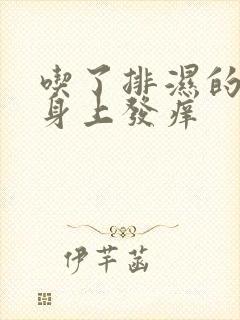 喫了排濕的
身上發痒
伊芊菡